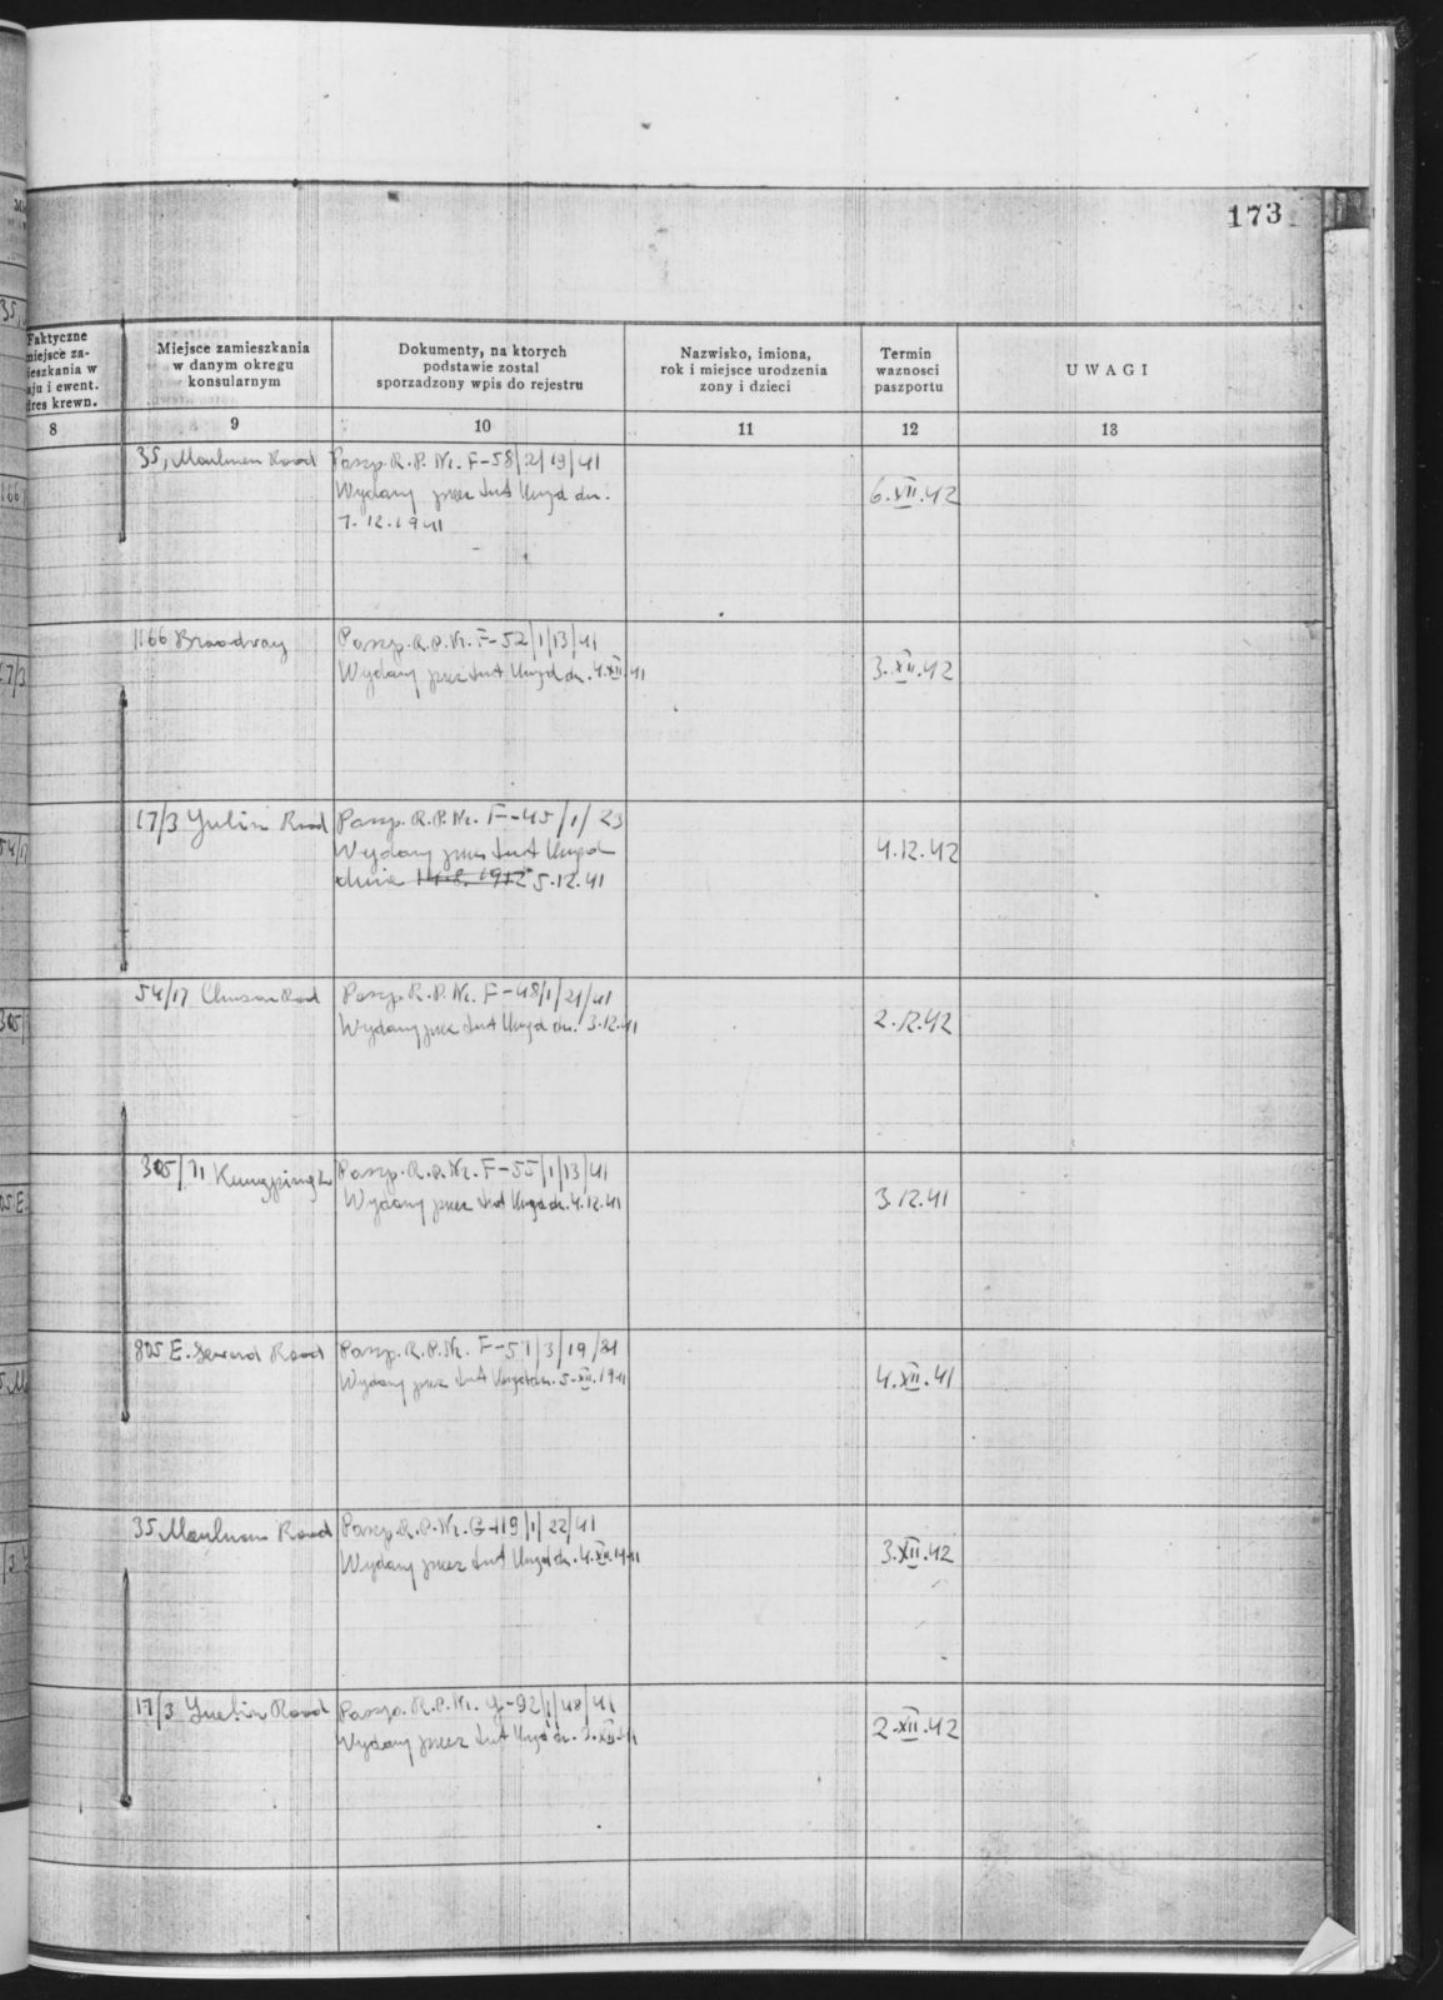 173
Faktyczne
miejsce za-
ieszkania w
aju i ewent.
dres krewn.
Miejsce zamieszkania
w danym okregu
konsularnym
Dokumenty, na ktorych
podstawie zostal
sporzadzony wpis do rejestru
Nazwisko, imiona,
rok i miejsce urodzenia
zony i dzieci
Termin
waznosci
paszportu
UWAGI
8
9
10
11
12
13
35, Moulmen Road
Paszp. R.P. Nr. F-58/2/19/41
Wydany przez tut Urzyd dn.
7.12.1941
6.XII.42
1166 Broadway
Paszp. R.P. Nr. F-52/1/13/41
Wydany przez tut Urzyd dn. 4.XII.41
3.XII.42
17/3 Yulin Road
Paszp. R.P. Nr. F-45/1/23
Wydany przez tut Urzyd
dnia 14.8.1912 5.12.41
4.12.42
54/17 Chusan Road
Paszp. R.P. Nr. F-48/1/21/41
Wydany przez tut Urzyd dn. 3.12.41
2.12.42
305/71 Kungping
Paszp. R.P. Nr. F-55/1/13/41
Wydany przez tut Urzyd dn. 4.12.41
3.12.41
805 E. Seward Road
Paszp. R.P. Nr. F-57/3/19/
Wydany przez tut Urzyd dn. 5.XII.1941
4.XII.41
35 Moulmen Road
Paszp. R.P. Nr. G-119/1/22/41
Wydany przez tut Urzyd dn. 4.XII.1941
3.XII.42
17/3 Yuelin Road
Paszp. R.P. Nr. G-92/1/48/41
Wydany przez tut Urzyd dn. 3.XII.41
2.XII.42